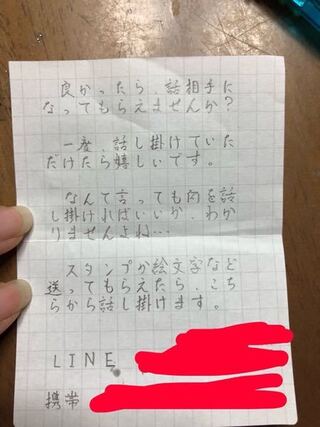 良かったら、話相手に
なってもらえませんか?
一度、話し掛けていた
だけたら嬉しいです。
なんて言っても何を話
し掛ければいいか、わか
りませんよね…
スタンプか絵文字など
送ってもらえたら、こち
らから話し掛けます。
LINE
携帯